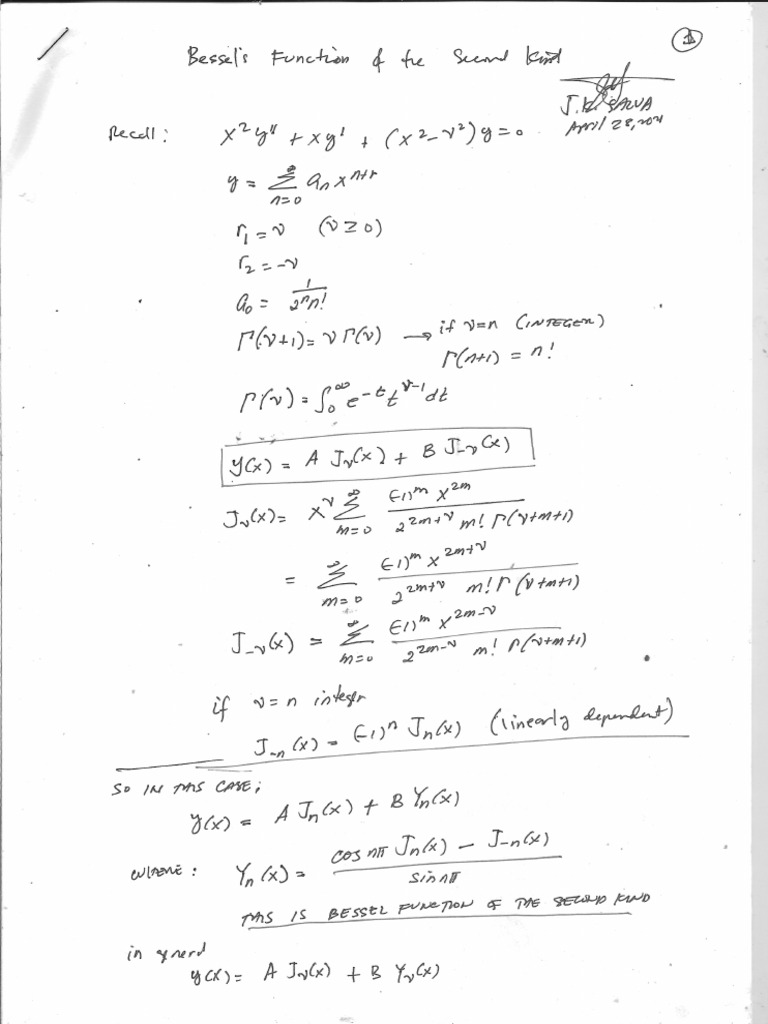 ①
Bessel's Function of the Second Kind
J. SALVA
April 28, 2021
Recall: x²y'' + xy' + (x² - ν²)y = 0
y = ∑_{n=0}^{∞} aₙ x^{n+r}
r₁ = ν (ν ≥ 0)
r₂ = -ν
a₀ = 1/(2ⁿn!)
Γ(ν+1) = ν Γ(ν) → if ν=n (INTEGER)
Γ(n+1) = n!
Γ(ν) = ∫₀^∞ e^{-t} t^{ν-1} dt
y(x) = A J_ν(x) + B J_{-ν}(x)
J_ν(x) = x^ν ∑_{m=0}^{∞} (-1)^m x^{2m} / (2^{2m+ν} m! Γ(ν+m+1))
= ∑_{m=0}^{∞} (-1)^m x^{2m+ν} / (2^{2m+ν} m! Γ(ν+m+1))
J_{-ν}(x) = ∑_{m=0}^{∞} (-1)^m x^{2m-ν} / (2^{2m-ν} m! Γ(ν+m+1))
if ν = n integer
J_{-n}(x) = (-1)ⁿ Jₙ(x) (linearly dependent)
SO IN THIS CASE;
y(x) = A Jₙ(x) + B Yₙ(x)
WHERE: Yₙ(x) = (cos nπ Jₙ(x) - J_{-n}(x)) / sin nπ
THIS IS BESSEL FUNCTION OF THE SECOND KIND
in general
y(x) = A J_ν(x) + B Y_ν(x)